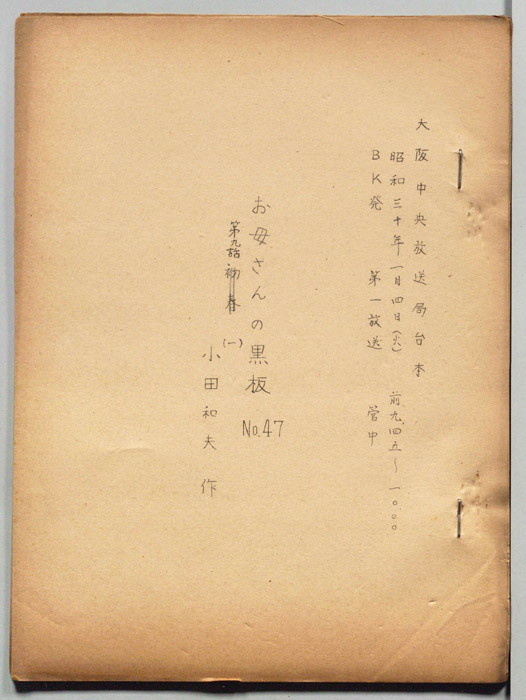 大阪中央放送局台本
昭和三十年一月四日(火) 前九.四五〜一〇〇〇
BK発 第一放送 管中
お母さんの黒板 No.47
第九話 初春 (一)
小田和夫 作